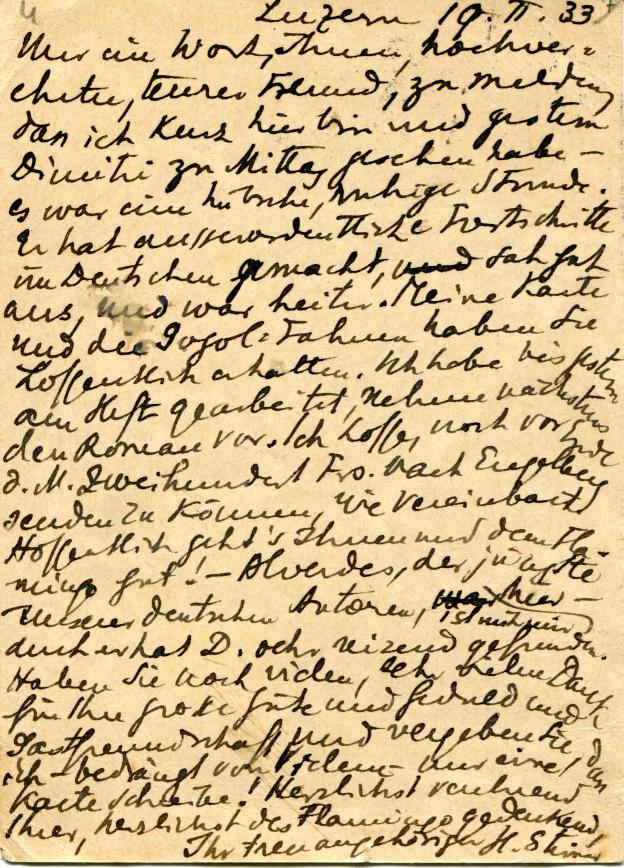 Luzern 19. II. 33
Nur ein Wort, Ihnen, hochver=
ehrter, teurer Freund, zu melden,
dass ich kurz hier bin und gestern
Dimitri zu Mittag gesehen habe –
es war eine hübsche, ruhige Stunde.
Er hat ausserordentliche Fortschritte
im Deutschen gemacht, und sah gut
aus, und war heiter. Meine Karte
und die Gogol=Fahnen haben Sie
hoffentlich erhalten. Ich habe bis gestern
am Heft gearbeitet, nehme nächstens
den Roman vor. Ich hoffe, noch vor Ende
d. M. Zweihundert Frs. nach Engelberg
senden zu können, wie vereinbart.
Hoffentlich geht's Ihnen und dem Fla-
mingo gut! – Alverdes, der jüngste
unserer deutschen Autoren, ist mit mir hier –
auch er hat D. sehr reizend gefunden.
Haben Sie noch vielen, sehr vielen Dank
für Ihre grosse Güte und Geduld und
Gastfreundschaft und vergeben Sie, dass
ich – bedrängt von Vielem – nur eine
Karte schreibe! Herzlichst verehrend
Ihrer, herzlichst des Flamingo gedenkend!
Ihr treuangehöriger H.